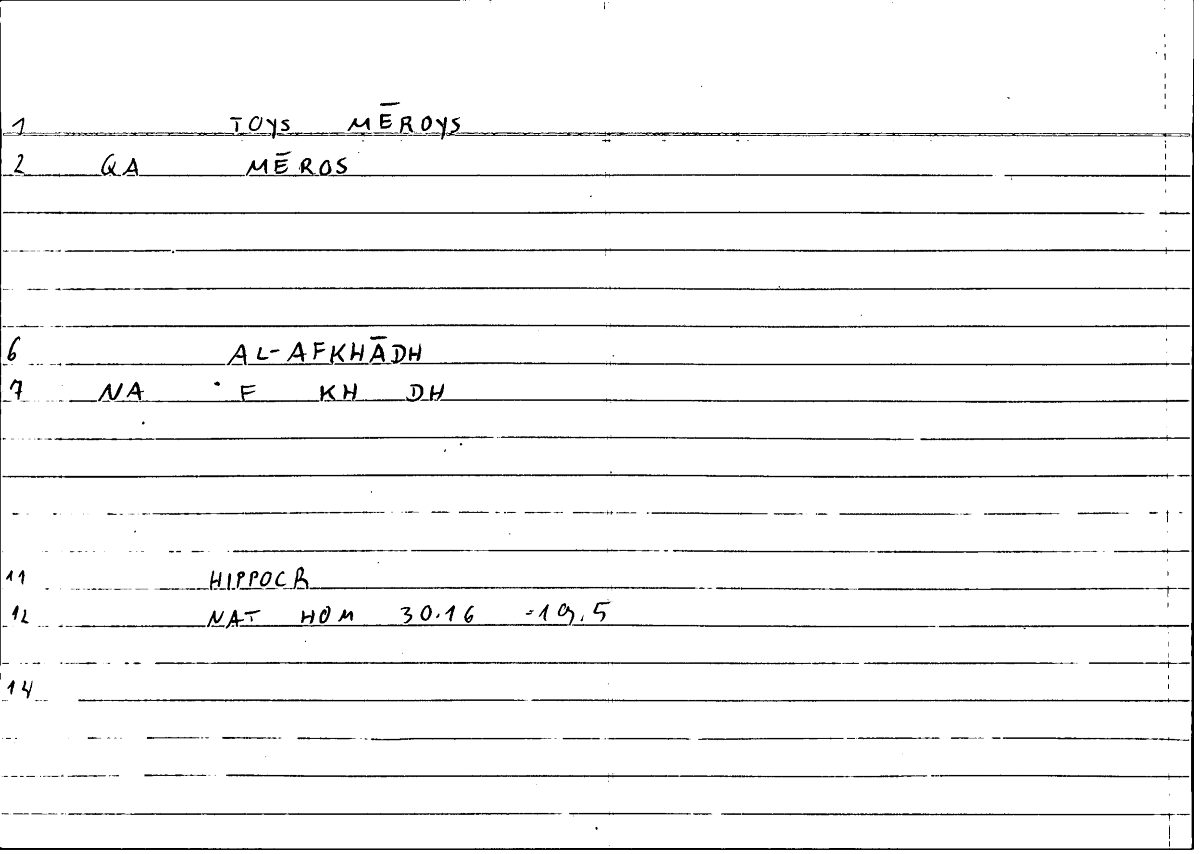 1 TOYS MĒROYS
2 QA MĒROS
6 AL-AFKHĀDH
7 NA F KH DH
11 HIPPOCR
12 NAT HOM 30.16 =19.5
14